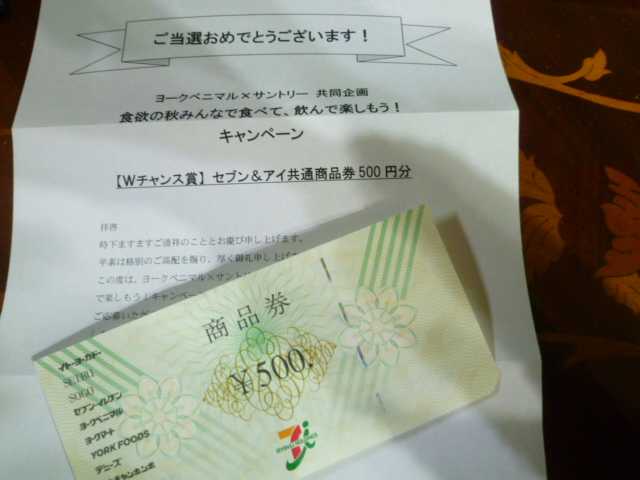 ご当選おめでとうございます！
ヨークベニマル×サントリー 共同企画
食欲の秋みんなで食べて、飲んで楽しもう！
キャンペーン
【Wチャンス賞】セブン＆アイ共通商品券500円分
拝啓
時下ますますご清祥のこととお慶び申し上げます。
平素は格別のご高配を賜り、厚く御礼申し上げ
この度は、ヨークベニマル×サント
で楽しもう！キャンペーン
ご応募いただ
商品券
¥500.
イトーヨーカドー
SEIBU
SOGO
セブン-イレブン
ヨークベニマル
ヨークマート
YORK FOODS
デニーズ